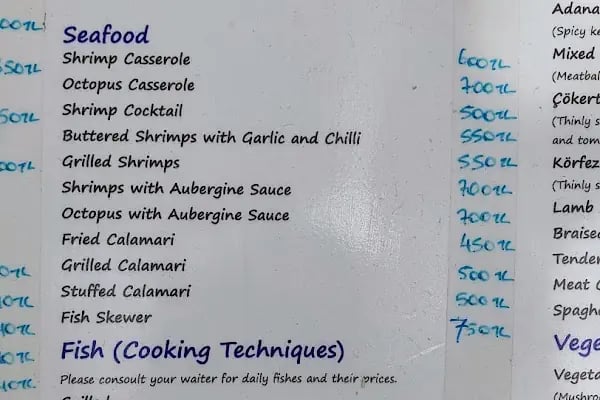 00TL
550TL
50TL
00TL
0TL
10TL
10TL
10TL
10TL
Seafood
Shrimp Casserole 600TL
Octopus Casserole 700TL
Shrimp Cocktail 500TL
Buttered Shrimps with Garlic and Chilli 550TL
Grilled Shrimps 550TL
Shrimps with Aubergine Sauce 700TL
Octopus with Aubergine Sauce 700TL
Fried Calamari 450TL
Grilled Calamari 500TL
Stuffed Calamari 500TL
Fish Skewer 750TL
Fish (Cooking Techniques)
Please consoult your waiter for daily fishes and their prices.
Adana
(Spicy ke
Mixed
(Meatbal
Çökert
(Thinly s
and tom
Körfez
(Thinly s
Lamb
Braised
Tender
Meat
Spagh
Vege
Vegeta
(Mushro